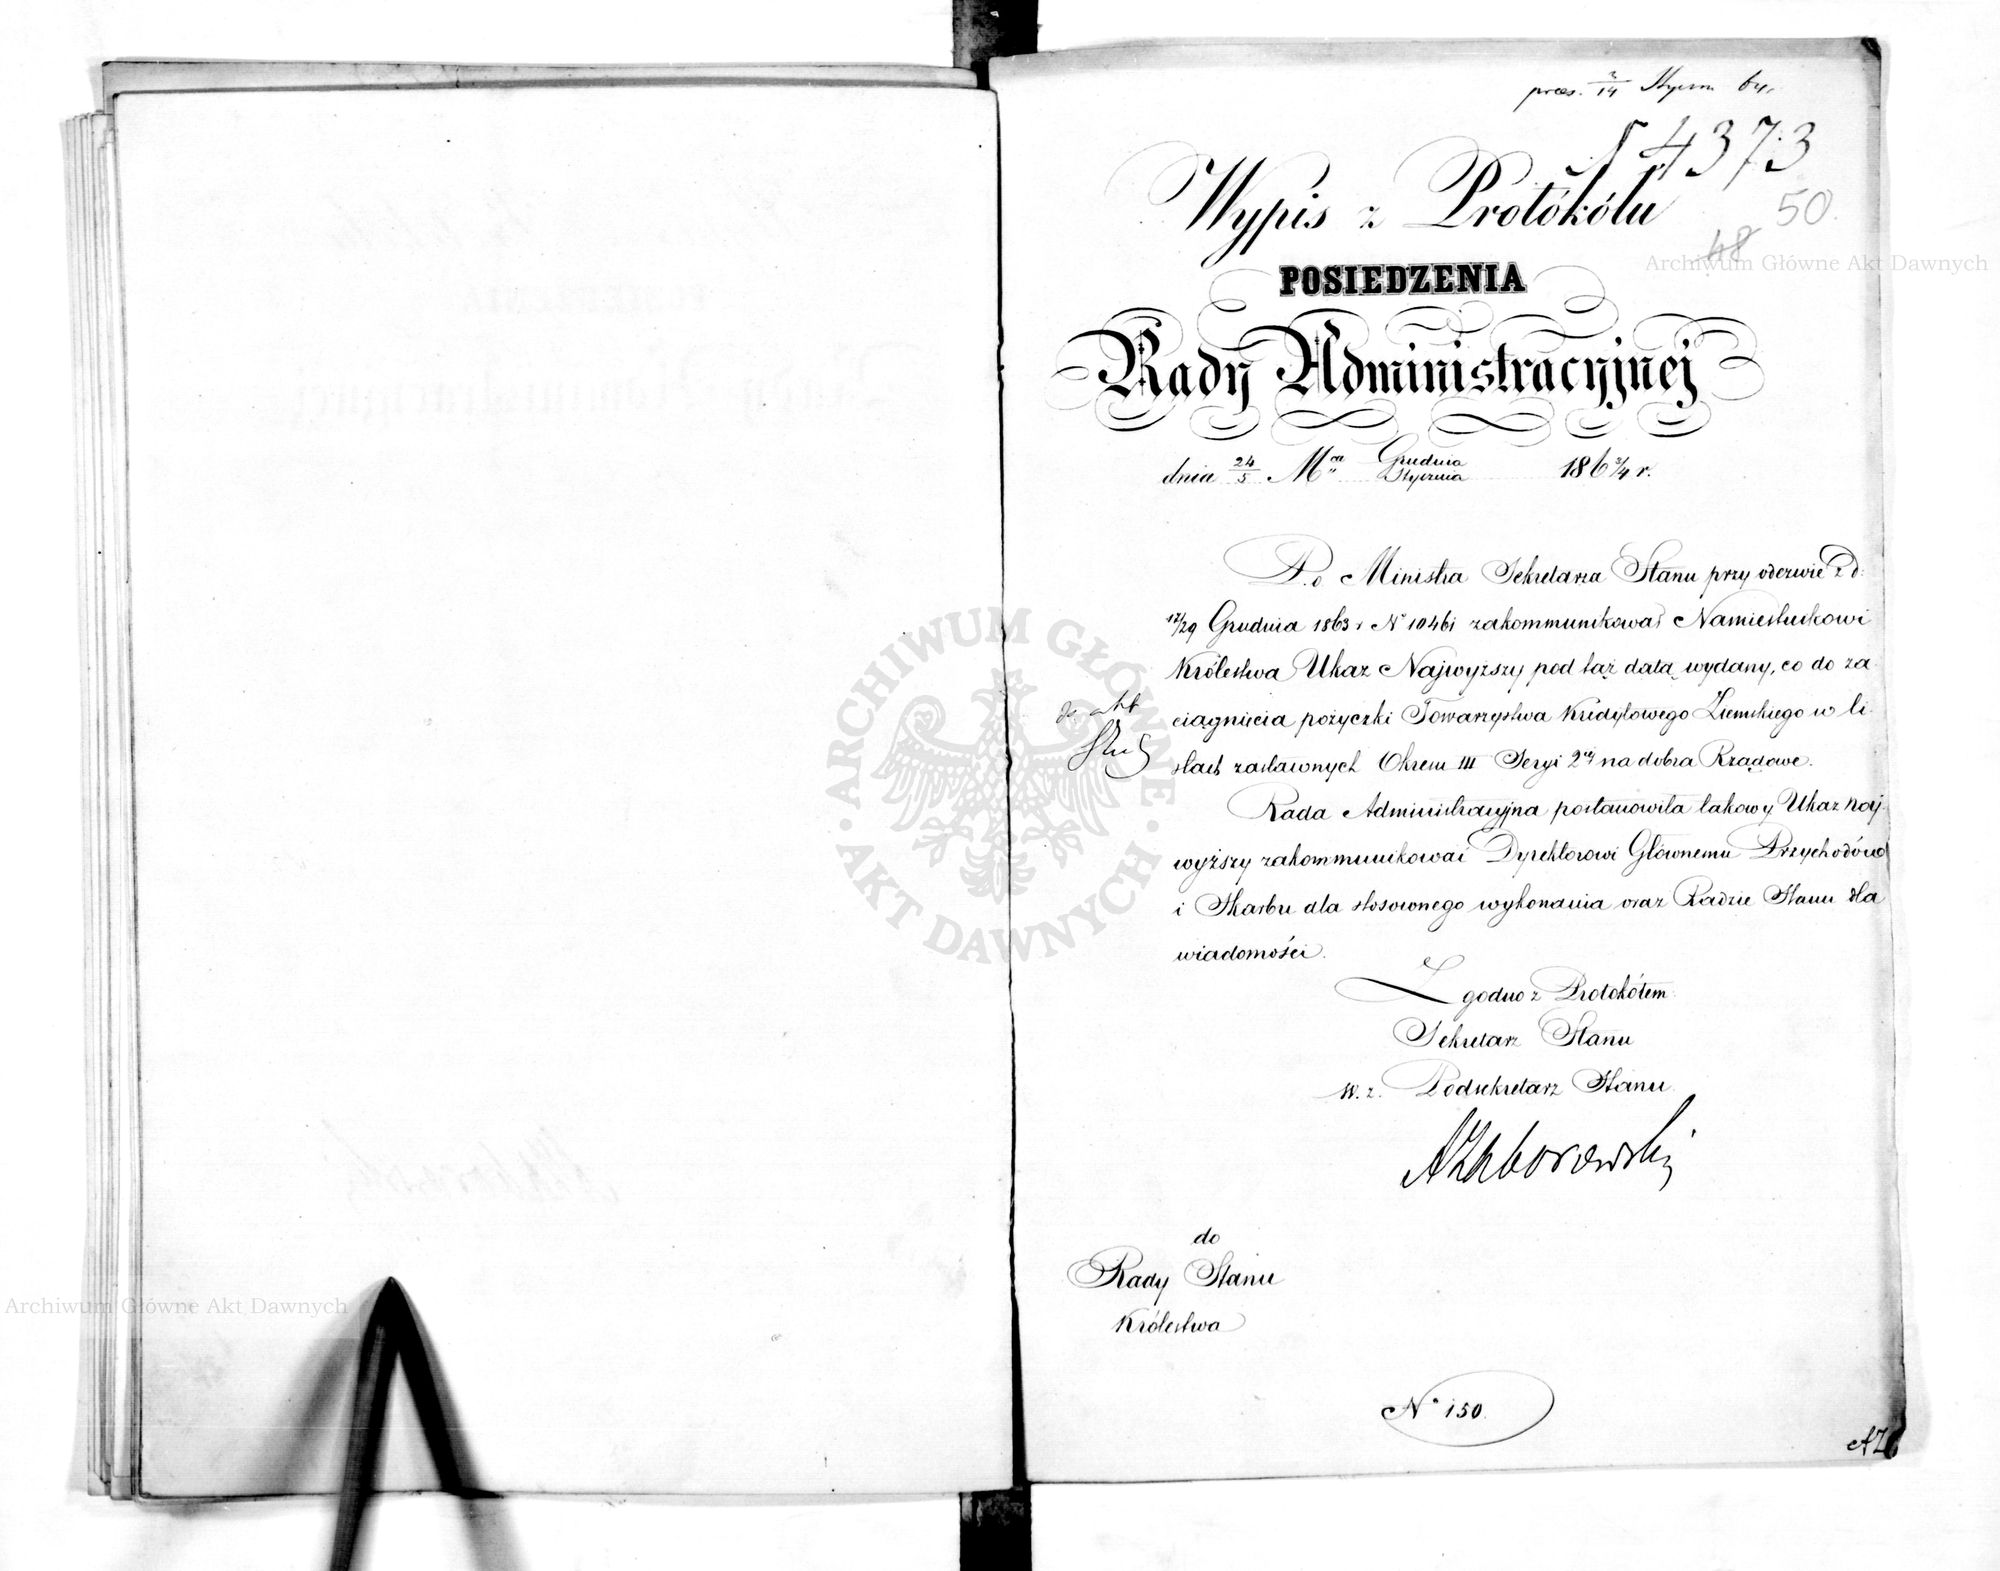 praes. 2/14 Stycznia 64 r.
N 4373
50
48
Wypis z Protókólu
POSIEDZENIA
Rady Administracyjnej
dnia 24/5 Mca Grudnia/Stycznia 1863/4 r.
P. o Ministra Sekretarza Stanu przy odezwie z d:
17/29 Grudnia 1863 r N° 10461 zakommunikował Namiestnikowi
Królestwa Ukaz Najwyższy pod taż datą wydany, co do za-
ciągnięcia pożyczki Towarzystwa Kredytowego Ziemskiego w li-
stach zastawnych Okresu III Seryi 2ej na dobra Rządowe.
do akt
Rada Administracyjna postanowiła takowy Ukaz Naj-
wyższy zakommunikować Dyrektorowi Głównemu Przychodów
i Skarbu dla stosownego wykonania oraz Radzie Stanu dla
wiadomości.
Zgodno z Protokółem
Sekretarz Stanu
w. z. Podsekretarz Stanu
AZaborowski
do
Rady Stanu
Królestwa
N° 150.
AZ
Archiwum Główne Akt Dawnych
Archiwum Główne Akt Dawnych
ARCHIWUM GŁÓWNE
· AKT DAWNYCH ·